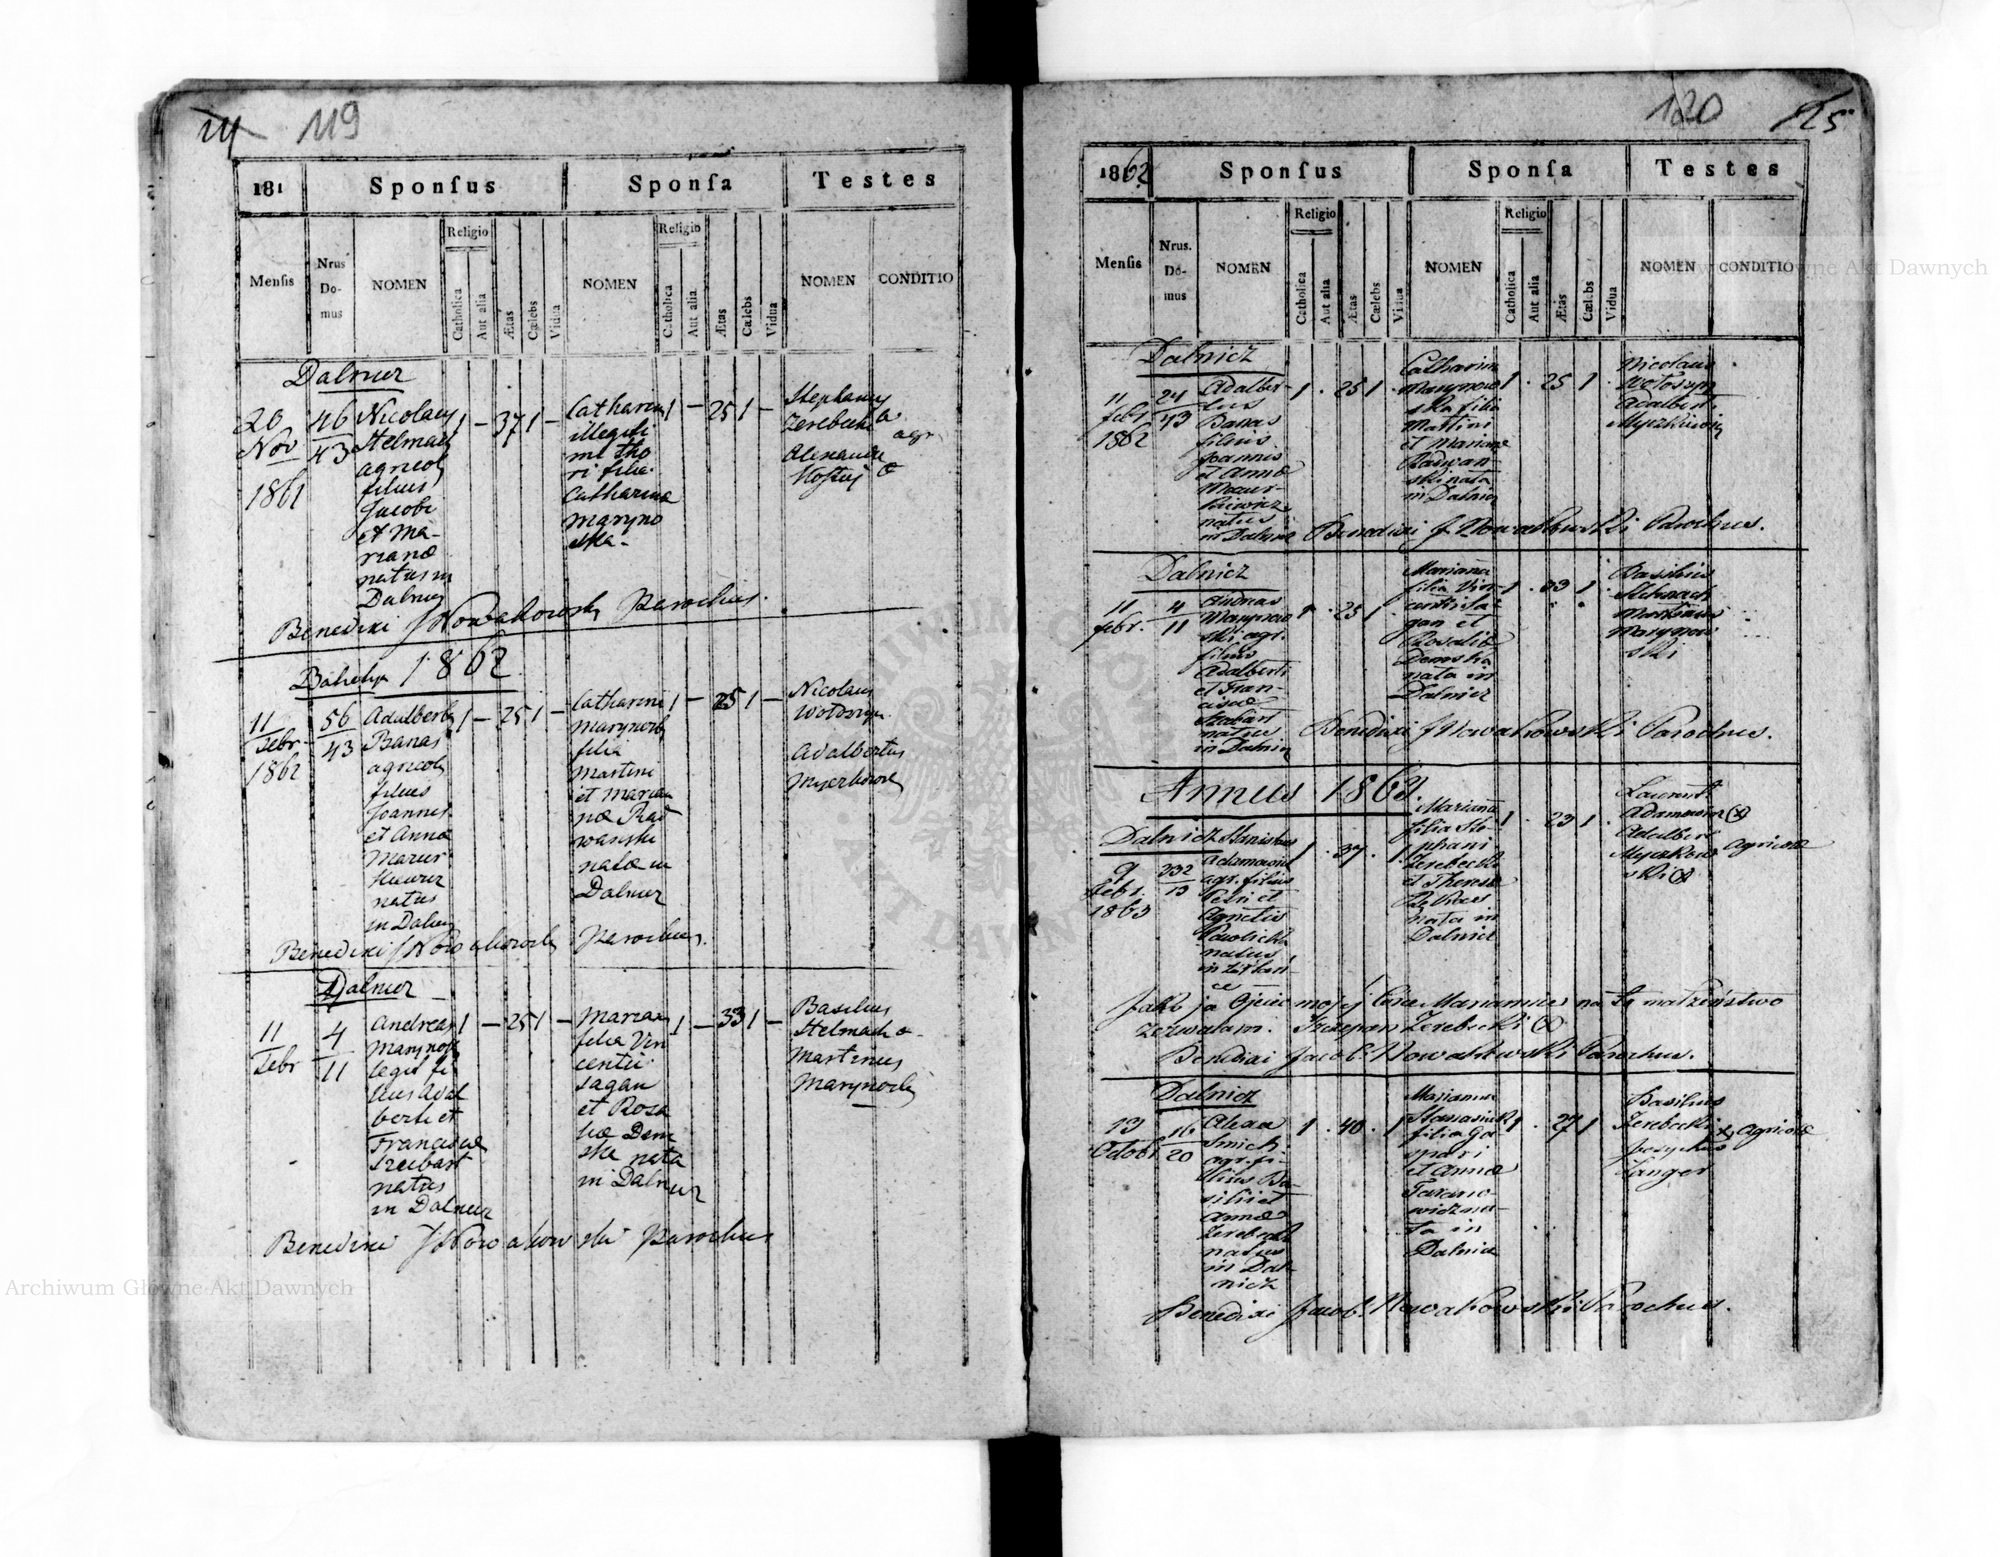 24 119
181 Sponsus Sponsa Testes
Mensis Nrus Domus NOMEN Religio Catholica Aut alia Ætas Cælebs Vidua NOMEN Religio Catholica Aut alia Ætas Cælebs Vidua NOMEN CONDITIO
Dalnicz
20 Nov 1861
46
43
Nicolaus
Stelmach
agricola
filius
Jacobi
et Ma-
rianæ
natus in
Dalnicz
1 - 37 1 -
Catharina
illegiti
mi tho
ri filia
Catharinæ
Maryno
ska -
1 - 25 1 -
Stephanus
Zerebecki
agr.
Alexander
Benedixi J Nowakowski Parochus.
1862
11
Febr
1862
56
43
Adalbertus
Banas
agricola
filius
Joannis
et Annæ
Mazur
natus
in Dalnicz
1 - 25 1 -
Catharina
filia
Martini
et Marian
næ Rad
wanski
nata in
Dalnicz
1 - 25 1 -
Nicolaus
Wołoszyn
Adalbertus
Benedixi J Nowakowski Parochus.
Dalnicz
11
Febr
4
11
Andreas
legit. fi-
lius Adal
berti et
Franciscæ
Szubart
natus
in Dalnicz
1 - 25 1 -
Marian
filia Vin
centii
Sagan
et Rosa
liæ Dem
ska nata
in Dalnicz
1 - 33 1 -
Basilius
Stelmach
Martinus
Benedixi J Nowakowski Parochus
120 25
1862 Sponsus Sponsa Testes
Mensis Nrus. Do-mus NOMEN Religio Catholica Aut alia Ætas Cælebs Vidua NOMEN Religio Catholica Aut alia Ætas Cælebs Vidua NOMEN CONDITIO
Dalnicz
11
febr
1862
24
43
Adalber-
tus
Banas
filius
Joannis
et Annæ
Mazur-
kiewicz
natus
in Dalnicz
1 . 25 1 .
Catharina
Marynow
ska filia
Martini
et Mariannæ
Radwan-
ski nata
in Dalnicz
1 . 25 1 .
Nicolaus
Wołoszyn
Adalbert
Benedixi J Nowakowski Parochus.
Dalnicz
11
febr.
4
11
Andreas
Marynow
ski agr.
filius
Adalberti
et Fran-
ciscæ
Szubart
natus
in Dalnicz
1 . 25 1
Marianna
filia Vin-
centii Sa-
gan et
Rosaliæ
Demska
nata in
Dalnicz
1 . 33 1
Basilius
Stelmach
Martinus
Marynow
ski
Benedixi J Nowakowski Parochus.
Annus 1863.
Dalnicz
9
Febr.
1863
232
13
Stanislaus
Adamowicz
agr. filius
Petri et
Agnetis
Pawlicka
natus
1 . 37 . 1
Marianna
filia Ste-
phani
Zerebecki
et Theresæ
nata in
Dalnicz
1 . 23 1
Laurent
Adamowicz (x)
Adalbert
Myczkow
ski (x)
agricolæ
Jako ja Ojciec mojej Córce Mariannie na to małżeństwo
zezwalam. Szczepan Zerebecki (x)
Benedixi Jacob. Nowakowski Parochus.
Dalnicz
13
Octobr
16
20
agr. fi-
lius Ba-
silii et
Annæ
Zerebecki
natus
in Dal-
nicz
1 . 40 . 1
Marianna
filia Ga
spari
et Annæ
Tarano-
wicz na-
ta in
Dalnicz
1 . 27 1
Basilius
Zerebecki
agricolæ
Langer
Benedixi Jacob. Nowakowski Parochus.
Archiwum Główne Akt Dawnych